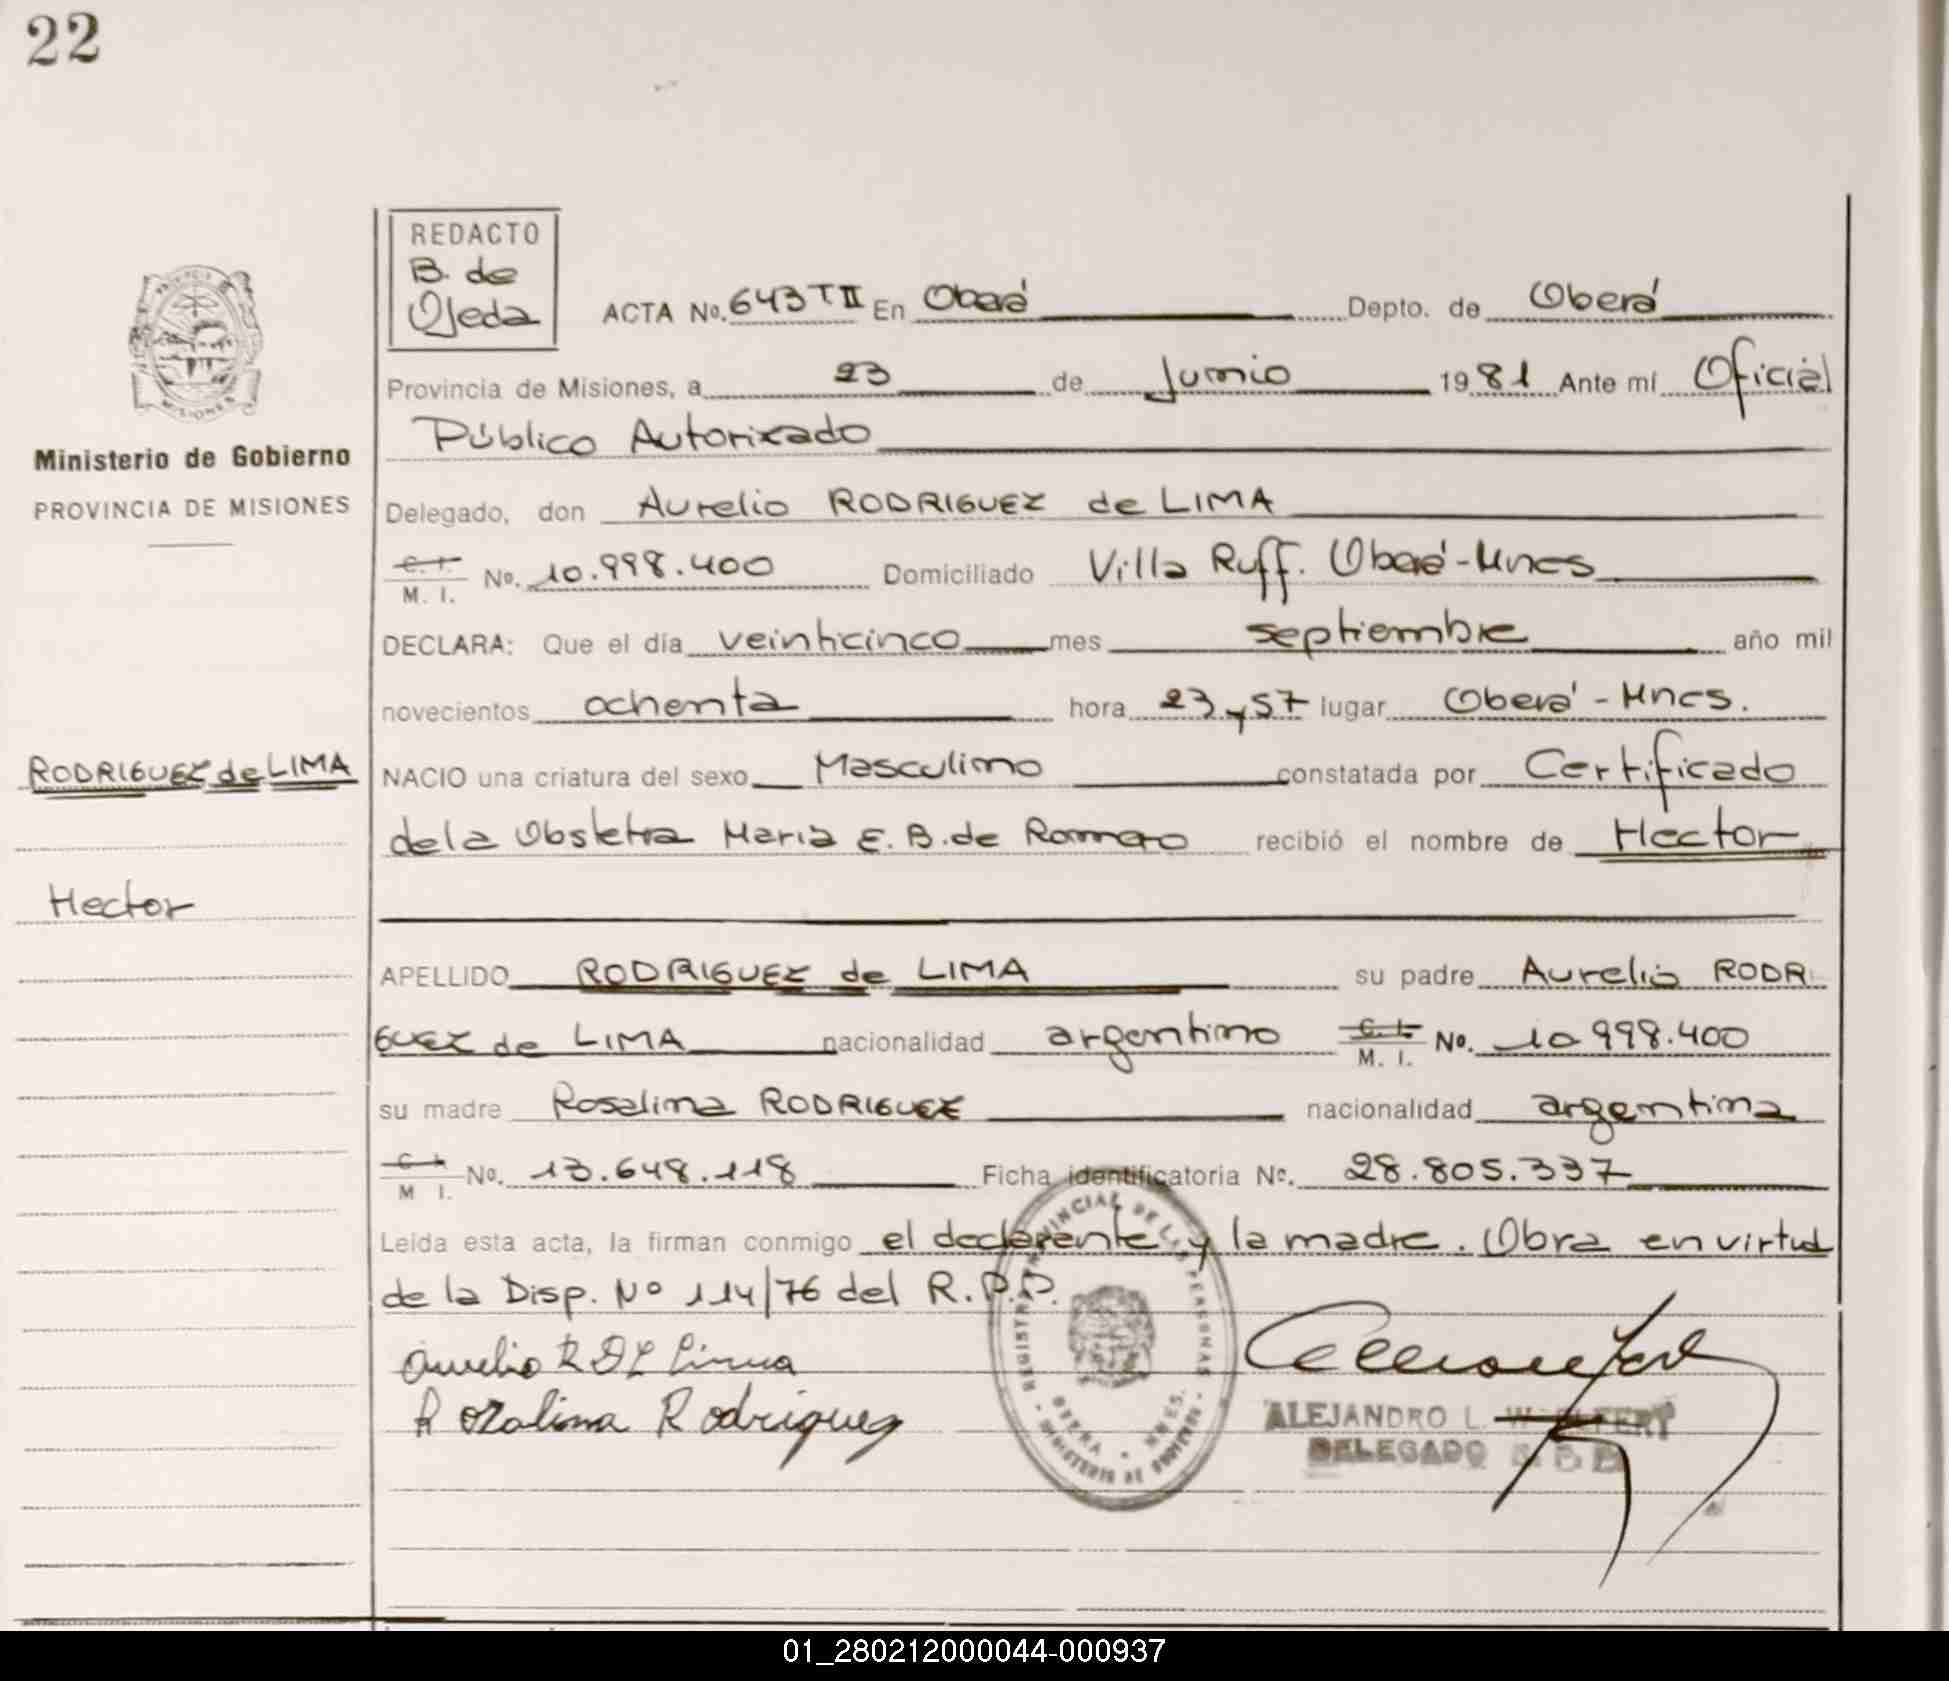 22
REDACTO
B. de
Ojeda
ACTA No. 643 T II En Oberá Depto. de Oberá
Provincia de Misiones, a 23 de Junio 1981 Ante mí Oficial
Público Autorizado
Ministerio de Gobierno
PROVINCIA DE MISIONES
Delegado, don Aurelio RODRIGUEZ de LIMA
C. I.
M. I. No. 10.998.400 Domiciliado Villa Ruff. Oberá-Mnes
DECLARA: Que el día veinticinco mes septiembre año mil
novecientos ochenta hora 23 y 57 lugar Oberá - Mnes.
RODRIGUEZ de LIMA
NACIO una criatura del sexo Masculino constatada por Certificado
de la Obstetra Maria E. B. de Romero recibió el nombre de Hector
Hector
APELLIDO RODRIGUEZ de LIMA su padre Aurelio RODRI
GUEZ de LIMA nacionalidad argentino C. I.
M. I. No. 10.998.400
su madre Rosalina RODRIGUEZ nacionalidad argentina
C. I.
M. I. No. 13.648.118 Ficha identificatoria No. 28.805.337
Leída esta acta, la firman conmigo el declarante y la madre. Obra en virtud
de la Disp. Nº 114/76 del R.P.P.
Aurelio R DL Lima
Rozalina Rodriguez
REGISTRO PROVINCIAL DE LAS PERSONAS
OBERA - MNES.
MINISTERIO DE GOBIERNO
ALEJANDRO L.
DELEGADO
01_280212000044-000937